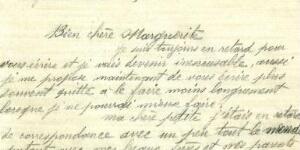 Bien chère Marguerite
je suis toujours en retard pour
vous écrire et je vais devenir inexcusable, aussi
je me propose maintenant de vous écrire plus
souvent quitte à le faire moins longuement
lorsque je ne pourrai mieux faire.
ma chère petite j'étais en retard
de correspondance avec un peu tout le monde
surtout avec mes beaux frères et